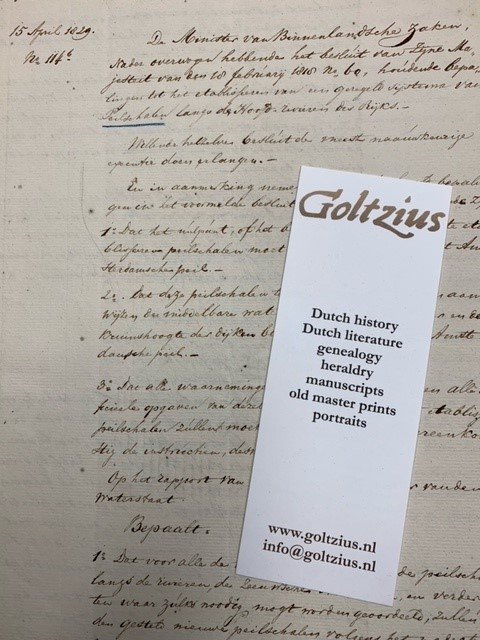 15 April 1829.
No. 114c
De Minister van Binnenlandsche Zaken,
Nader overwogen hebbende het besluit van Zyne Ma,
jesteit van den 18 february 1818 No. 60, houdende bepa,
lingen tot het etablisseren van een geregeld systema van
Peilschalen langs de Hoofd-rivieren des Rijks.—
Willende hetzelve besluit de meest naauwkeurige
executie doen erlangen.—
En in aanmerking neme
gen in het voormelde besluit
1o. Dat het nulpunt, of het
blisseren peilschalen moet
sterdamsche peil.—
2o. Dat deze peilschalen
wijzen den middelbare wat
Kruinshoogte der dijken
damsche peil.—
3o. Dat alle waarneming
ficiele opgaven van deze
peilschalen zullen moe
Op het rapport van
Waterstaat
Bepaalt.
1o. Dat voor alle de
langs de rivieren, de Zeeuwsche
ten waar zulks noodig mogt worden geoordeeld, zullen
den gestelde nieuwe peilschalen
Goltzius
Dutch history
Dutch literature
genealogy
heraldry
manuscripts
old master prints
portraits
www.goltzius.nl
info@goltzius.nl